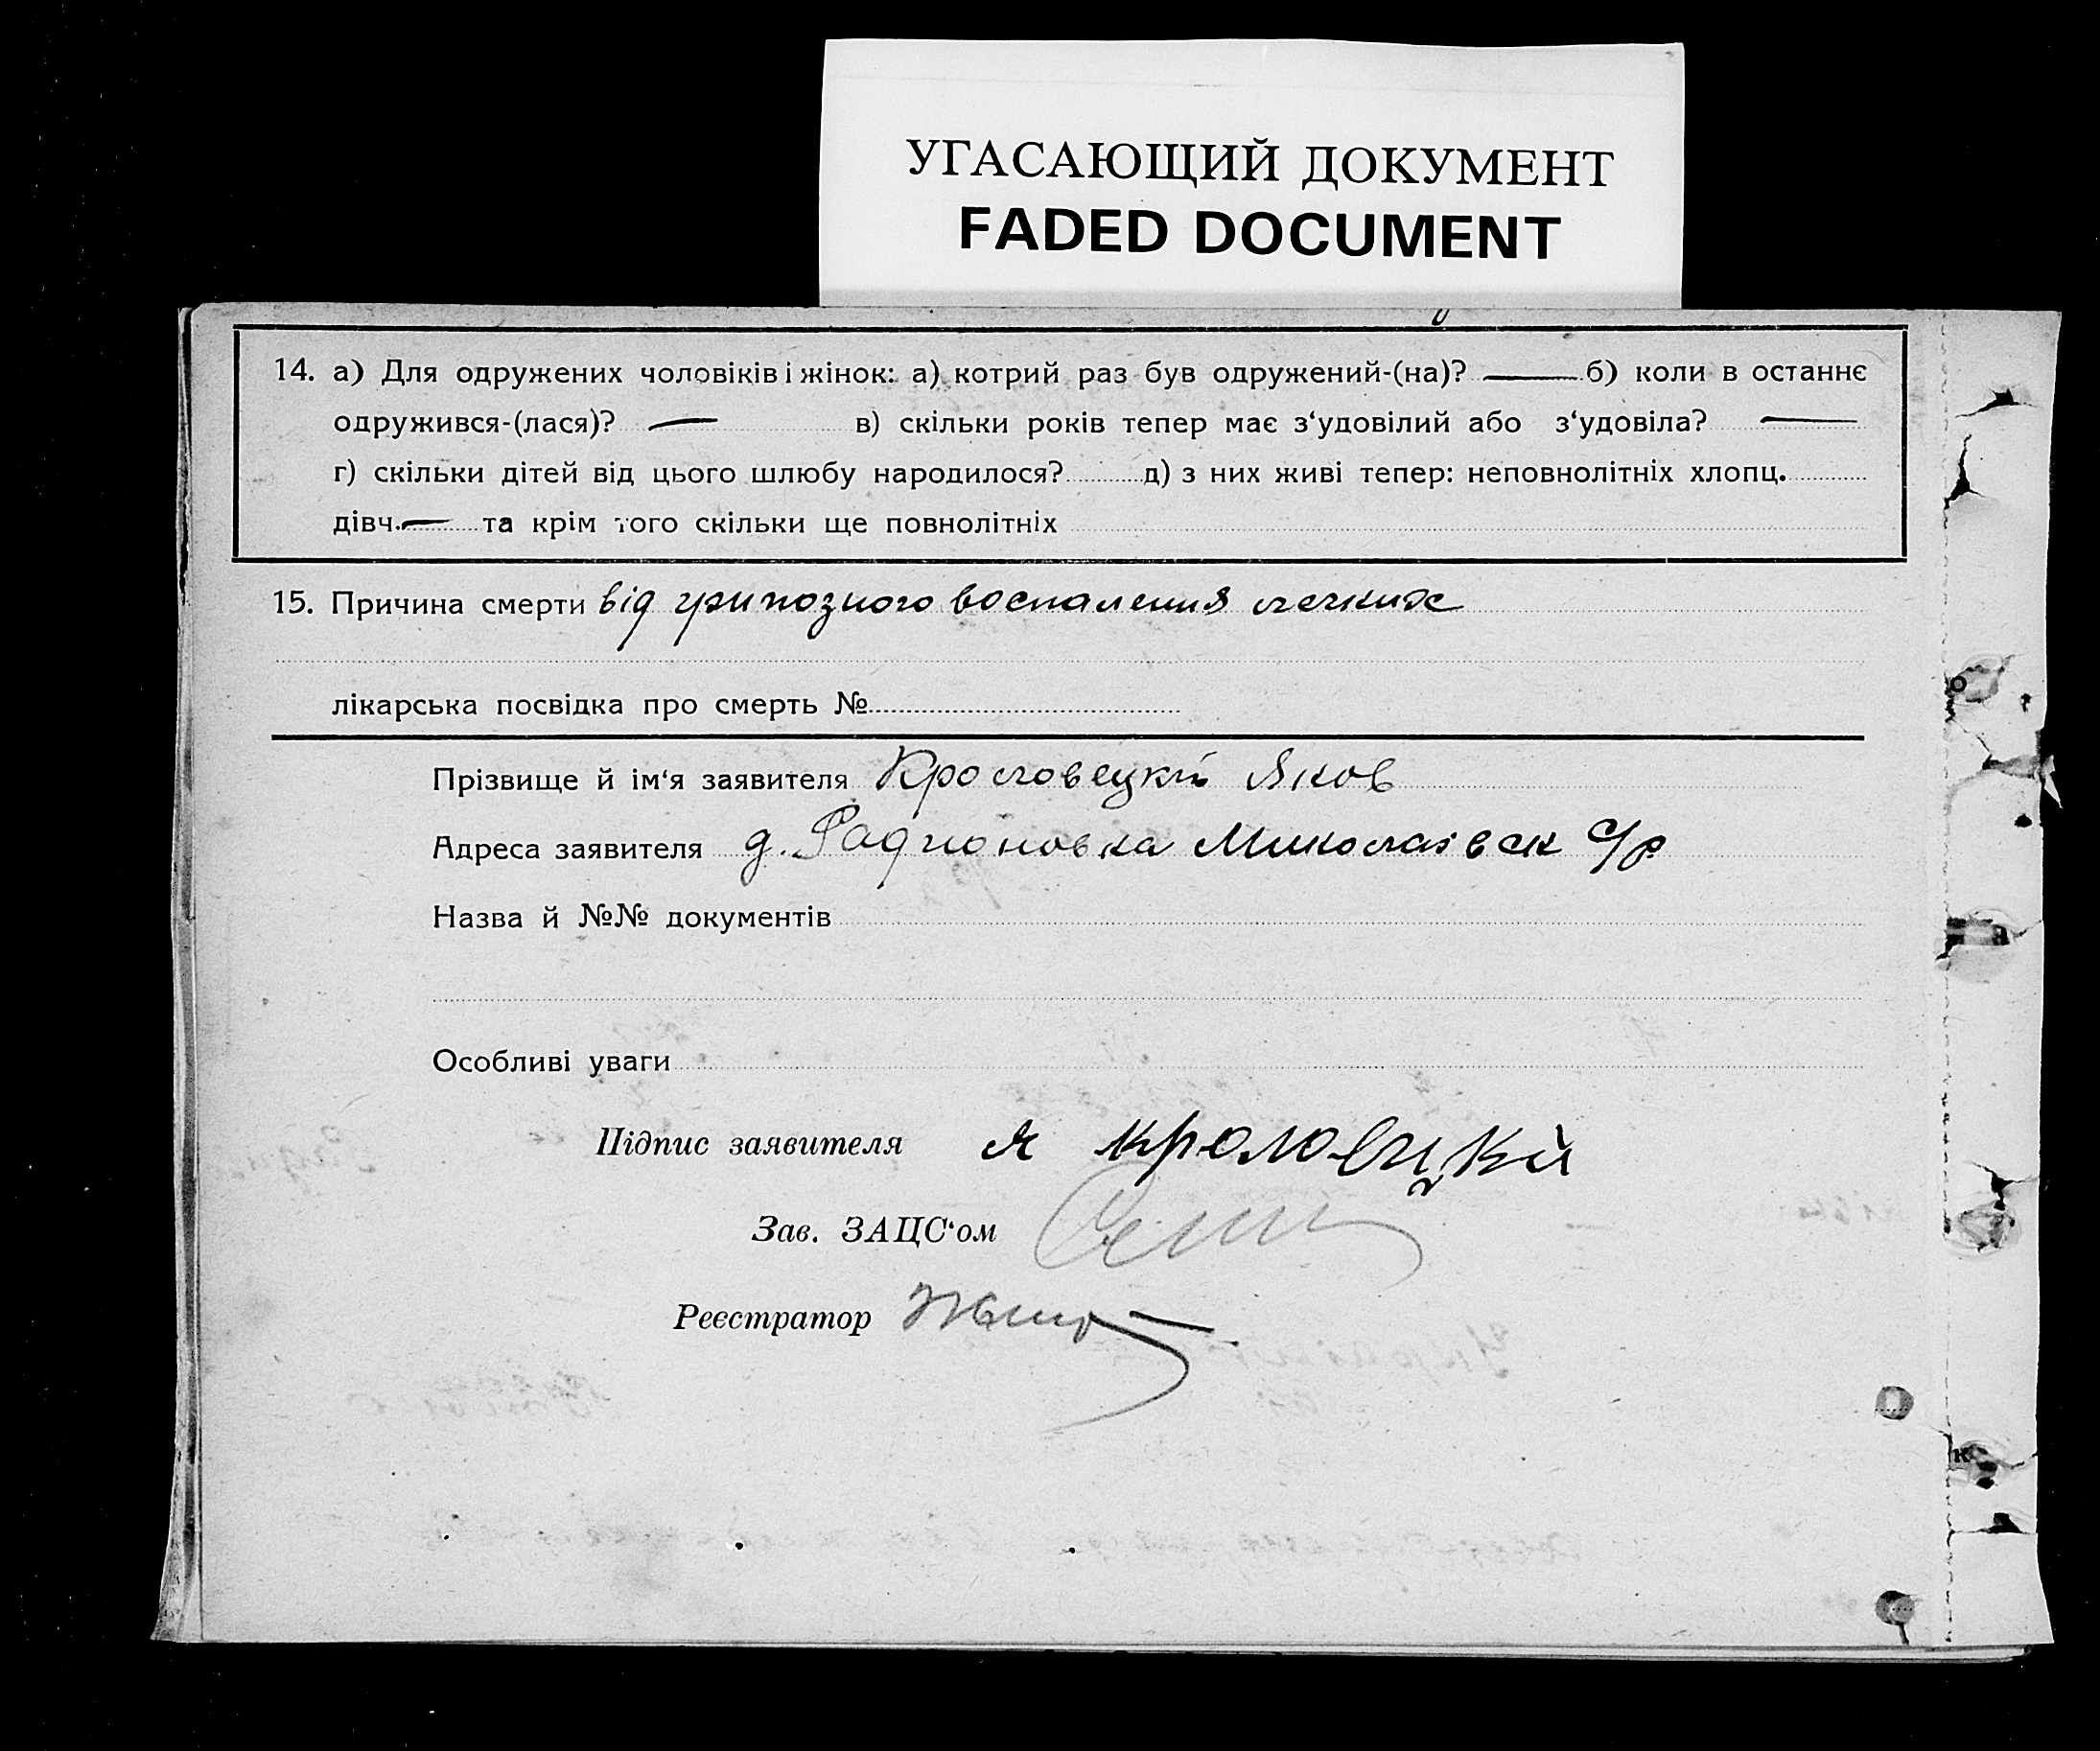 УГАСАЮЩИЙ ДОКУМЕНТ
FADED DOCUMENT
14. а) Для одружених чоловіків і жінок: а) котрий раз був одружений-(на)? — б) коли в останнє
одружився-(лася)? — в) скільки років тепер має з‘удовілий або з‘удовіла? —
г) скільки дітей від цього шлюбу народилося? д) з них живі тепер: неповнолітніх хлопц.
дівч. — та крім того скільки ще повнолітніх
15. Причина смерти від грипозного воспаления легких
лікарська посвідка про смерть №
Прізвище й ім‘я заявителя Кроловецкий Яков
Адреса заявителя д. Радионовка Миколаівск С/р
Назва й №№ документів
Особливі уваги
Підпис заявителя я кроловецкй
Зав. ЗАЦС‘ом
Реєстратор